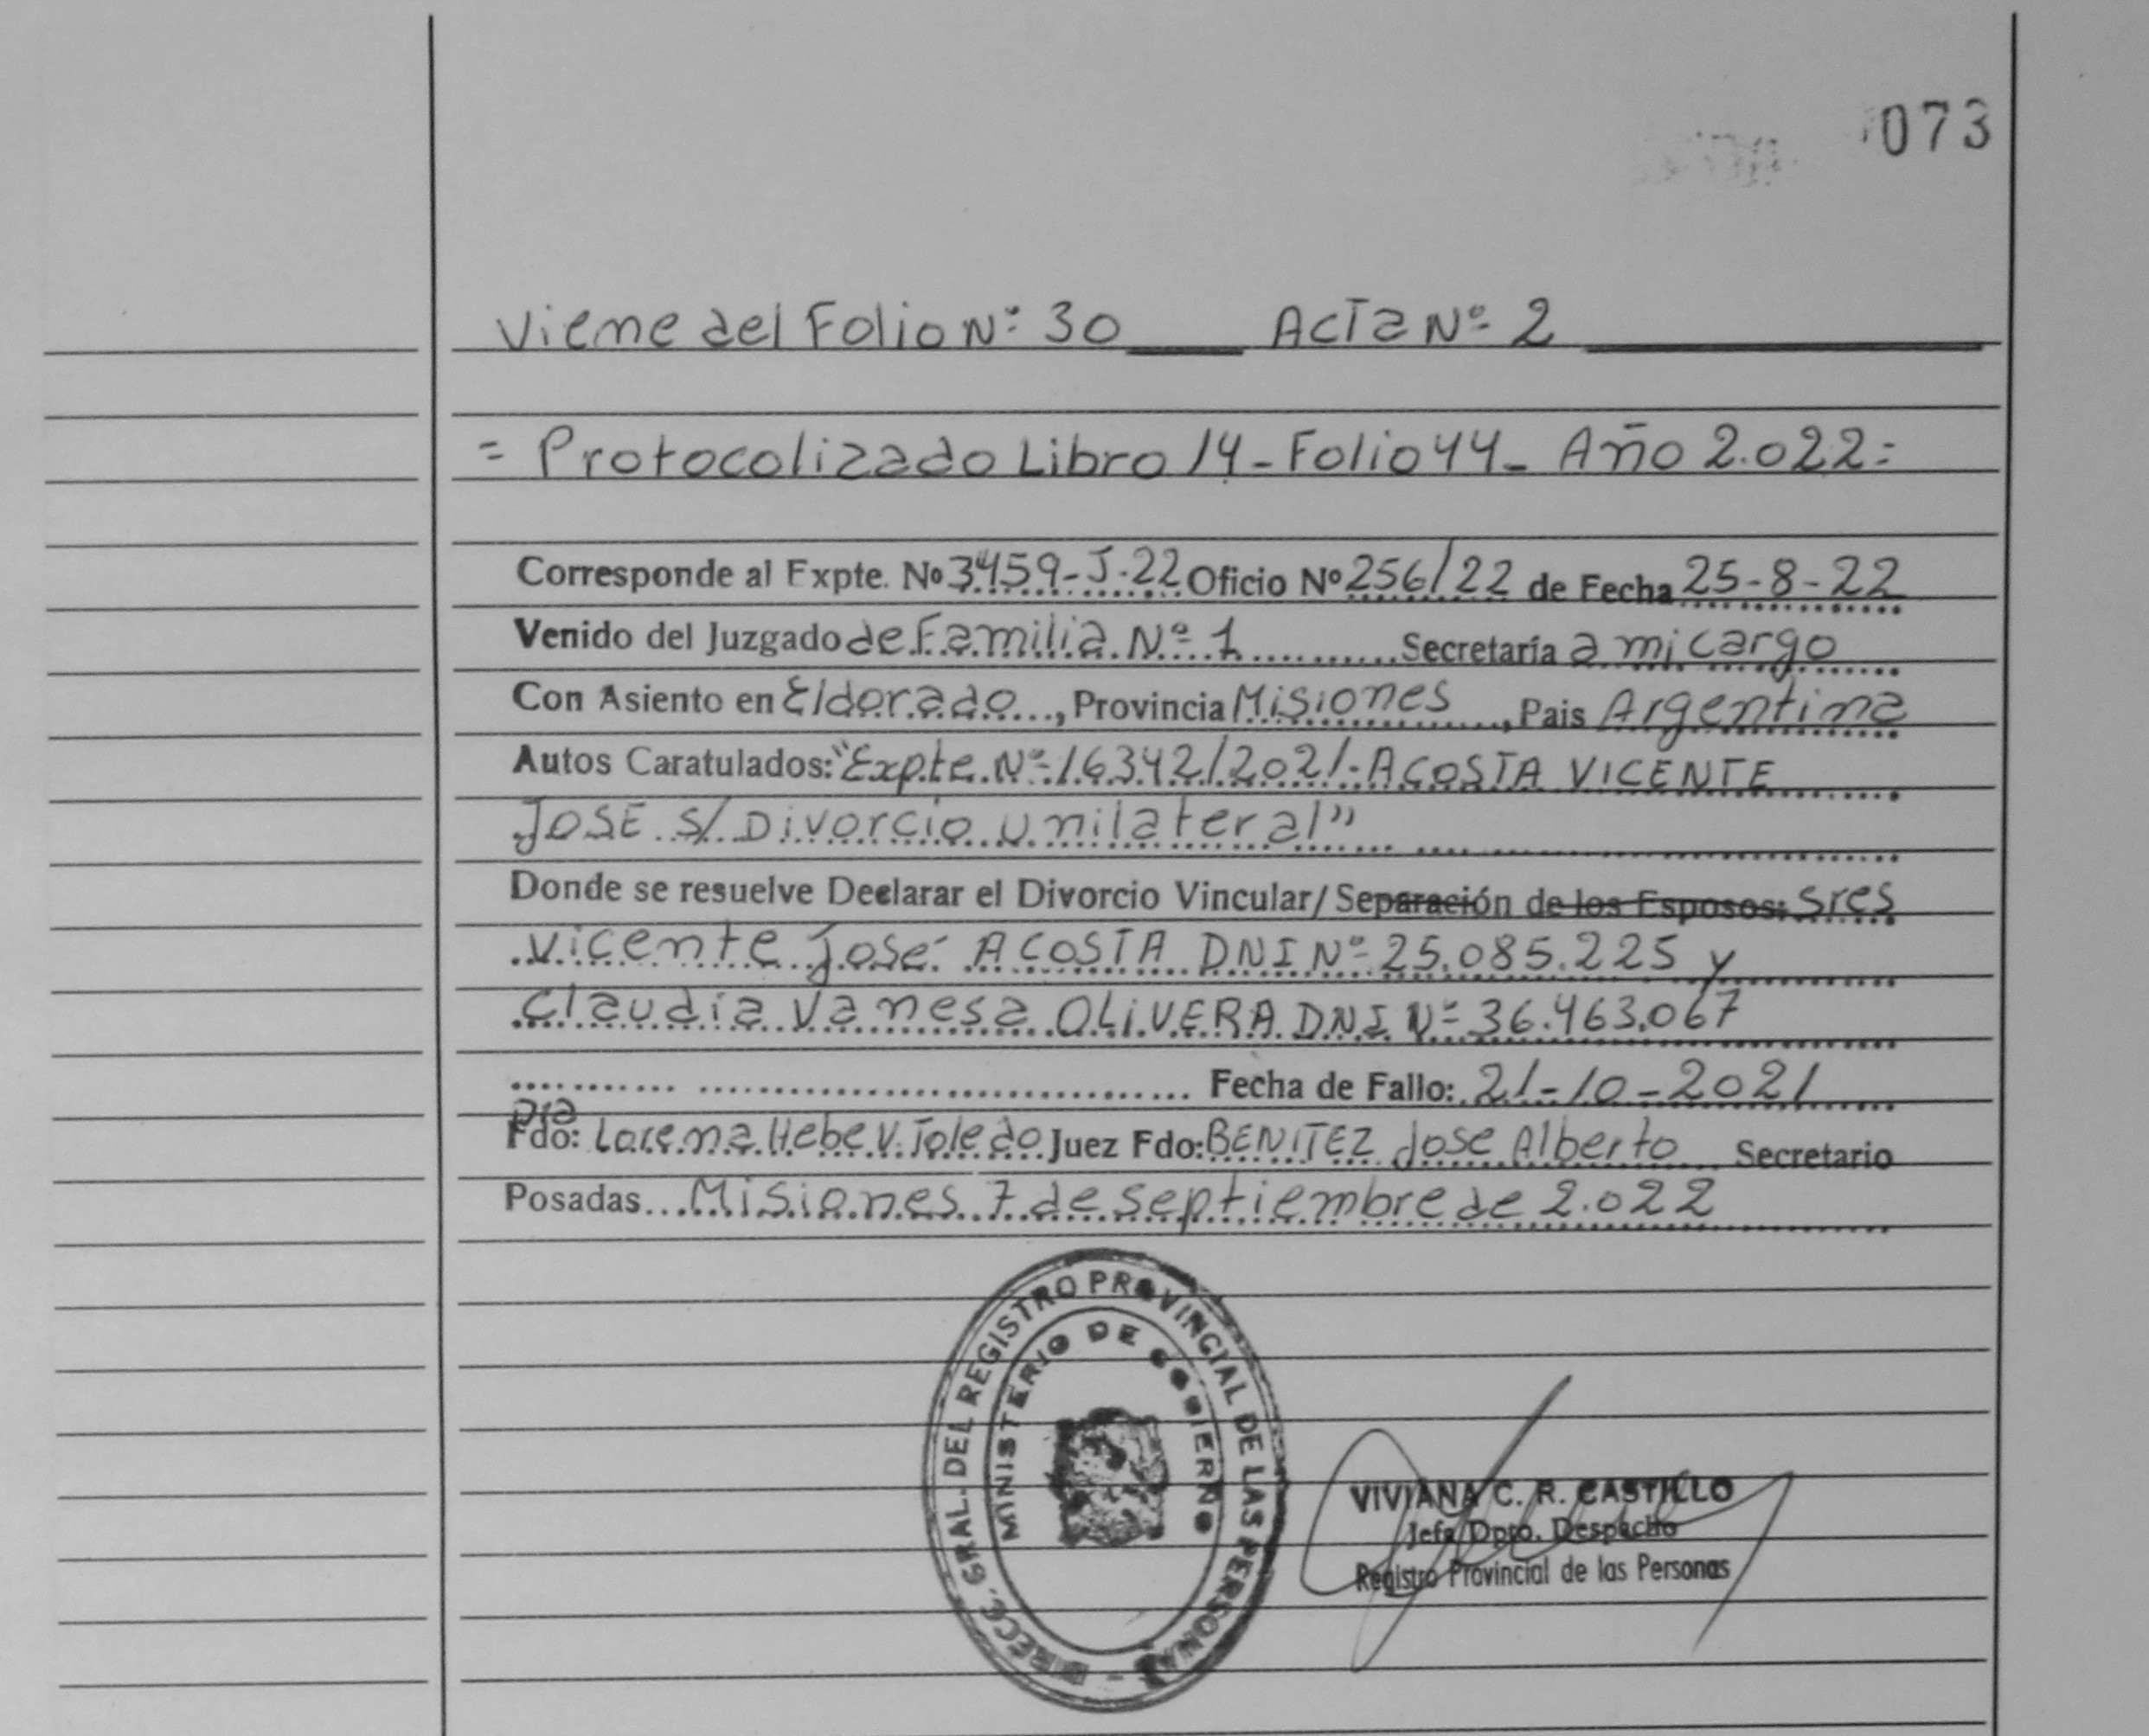 073
Viene del Folio Nº 30 Acta Nº 2
= Protocolizado Libro 14 - Folio 44 - Año 2.022 =
Corresponde al Expte. Nº 3459-J-22 Oficio Nº 256/22 de Fecha 25-8-22
Venido del Juzgado de Familia Nº 1 Secretaría a mi cargo
Con Asiento en Eldorado, Provincia Misiones, Pais Argentina
Autos Caratulados: "Expte Nº 16342/2021 - ACOSTA VICENTE
JOSE s/ Divorcio unilateral"
Donde se resuelve Declarar el Divorcio Vincular/Separación de los Esposos: Sres
Vicente José ACOSTA DNI Nº 25.085.225 y
Claudia Vanesa OLIVERA DNI Nº 36.463.067
Fecha de Fallo: 21-10-2021
Dra
Fdo: Lorena Hebe V. Toledo Juez Fdo: BENITEZ Jose Alberto Secretario
Posadas Misiones 7 de septiembre de 2.022
DIRECC. GRAL. DEL REGISTRO PROVINCIAL DE LAS PERSONAS -
MINISTERIO DE GOBIERNO
VIVIANA C. R. CASTILLO
Jefa Dpto. Despacho
Registro Provincial de las Personas